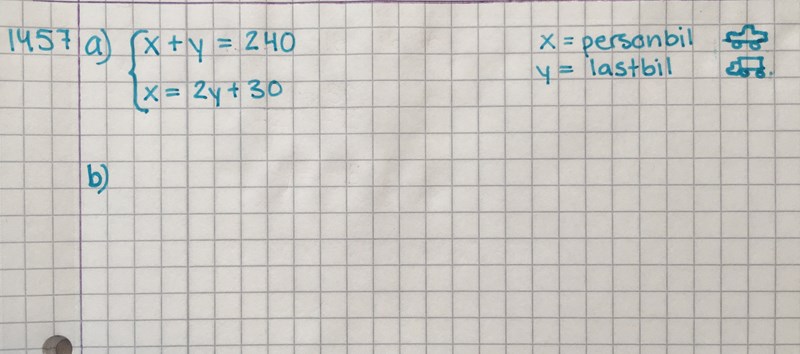 1457 a) x + y = 240
x = 2y + 30
x = personbil
y = lastbil
b)